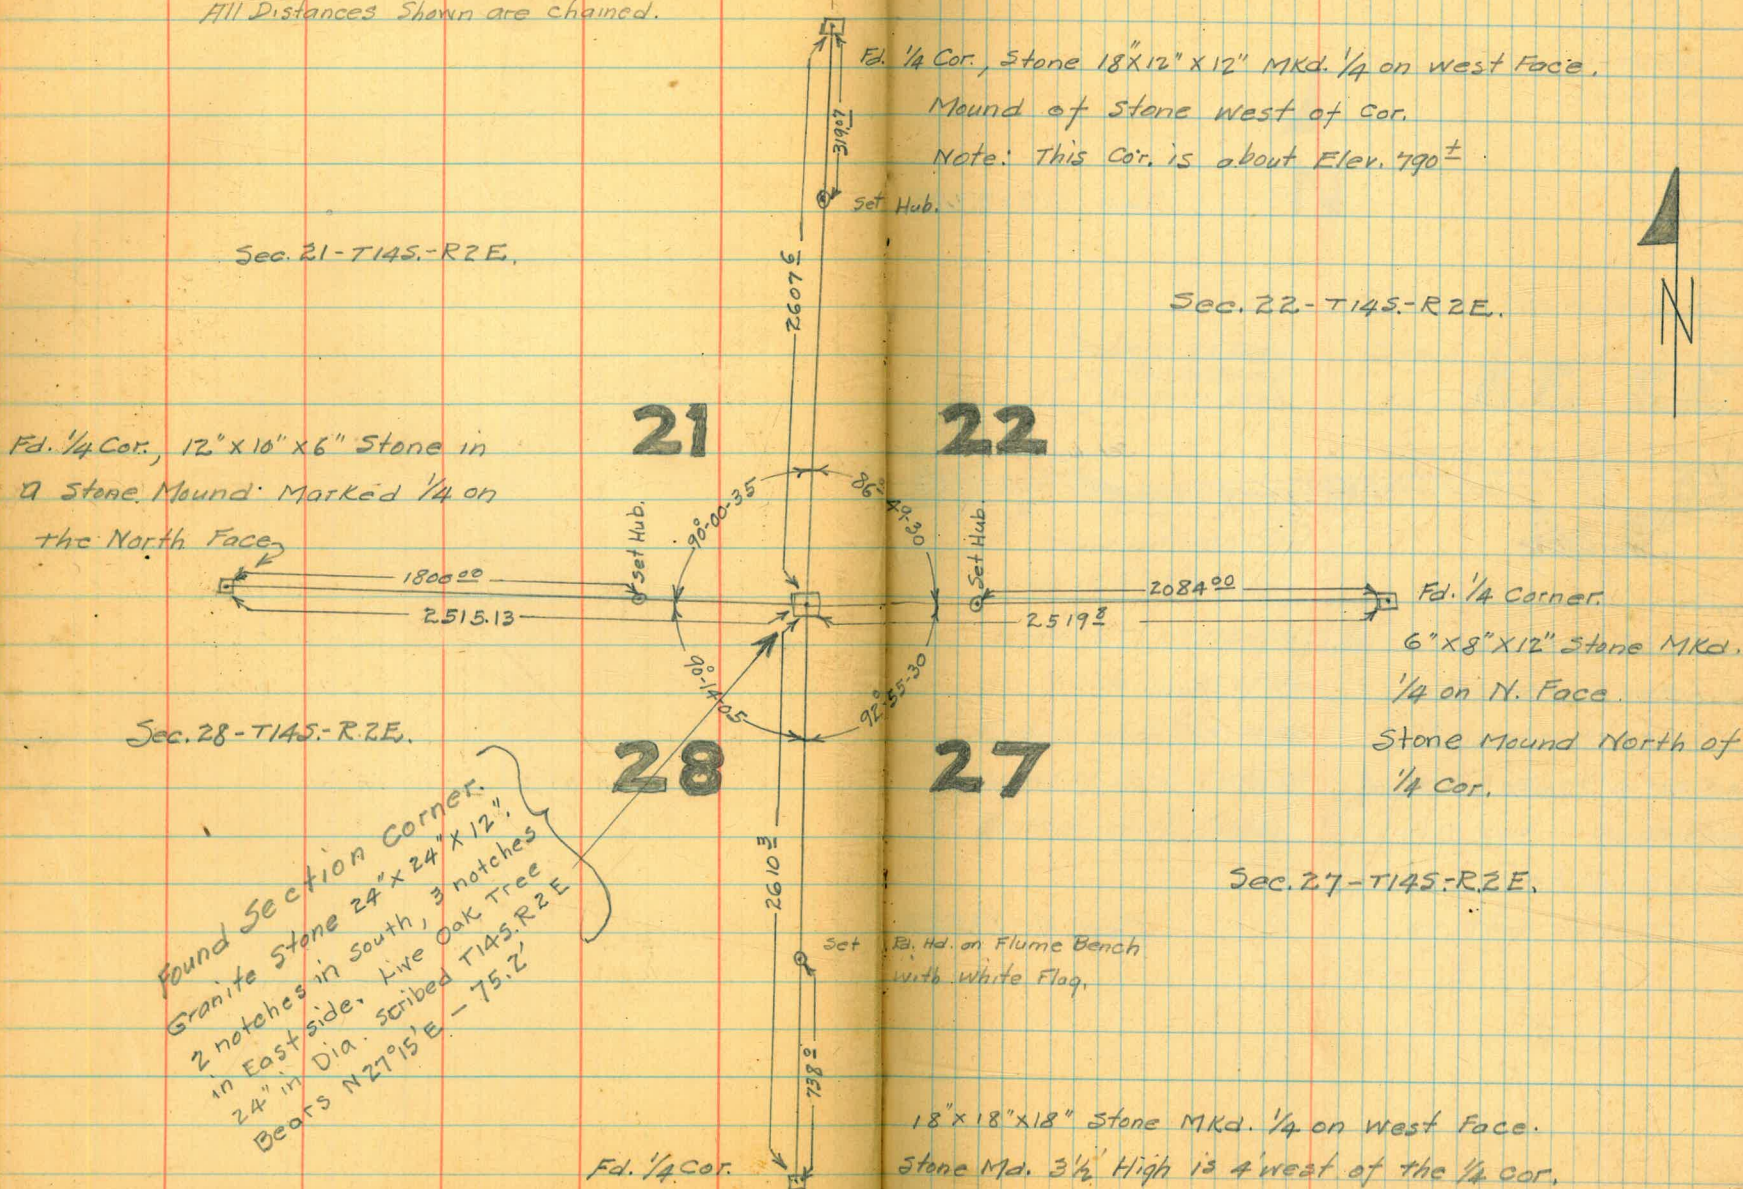 All Distances Shown are chained.
Fd. 1/4 Cor., Stone 18"X12"X12" MKd. 1/4 on west Face.
Mound of Stone West of Cor.
Note: This Cor. is about Elev. 790±.
319.07
Set Hub.
Sec. 21-T14S.-R2E.
2607 6
Sec. 22-T14S.-R2E.
N
21
22
Fd. 1/4 Cor., 12"X10"X6" Stone in
a Stone Mound. Marked 1/4 on
the North Face
Set Hub.
90°-00-35
86°-49-20
Set Hub.
1800 00
2515.13
2084 00
2519 8
Fd. 1/4 Corner.
6"X8"X12" Stone MKd.
1/4 on N. Face.
Stone Mound North of
1/4 Cor.
90°-14-05
92°-55-30
Sec. 28-T14S.-R.2E.
28
27
Found Section Corner.
Granite Stone 24"X24"X12".
2 notches in South, 3 notches
in East side. Live Oak Tree
24" in Dia. scribed T14S.R2E
Bears N27°15'E - 75.2'
2610 3
Sec. 27-T14S.-R.2E.
Set Rd. Hd. on Flume Bench
with White Flag.
738 0
18"X18"X18" Stone MKd. 1/4 on West Face.
Fd. 1/4 Cor. Stone Md. 3 1/2' High is 4' west of the 1/4 cor.